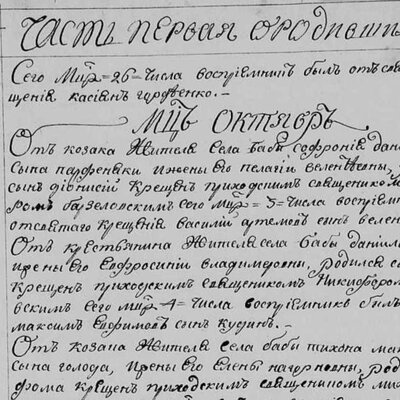 Часть первая ѡ родивши
Сего Мц҃а = 26 = Числа воспріемникъ былъ отъ свя
щенія касіянъ гордѣенко. —
Мц҃ъ Октяврь
Отъ козака Жителя села бабы софронія дани
сына парфенѣки и жены его пелагіи
сынъ діѡнисій крещенъ приходскимъ священикомъ
ромъ бугзеловскимъ сего Мц҃а = 5 = Числа воспріем
отсвятаго крещенія василій артемовъ сынъ велен
Отъ крестьянина Жителя села бабы даніила
ирены его Евфросиніи владимѣровны, родился с
Крещенъ приходскимъ священикомъ Никифором
вскимъ сего мц҃а 4 = числа воспріемникъ былъ
максимъ Ефимовъ сынъ
Отъ козака Жителя села бабы тихона ма
сына голода, и жены его Елены родил
фома крещенъ приходскимъ священикомъ ни